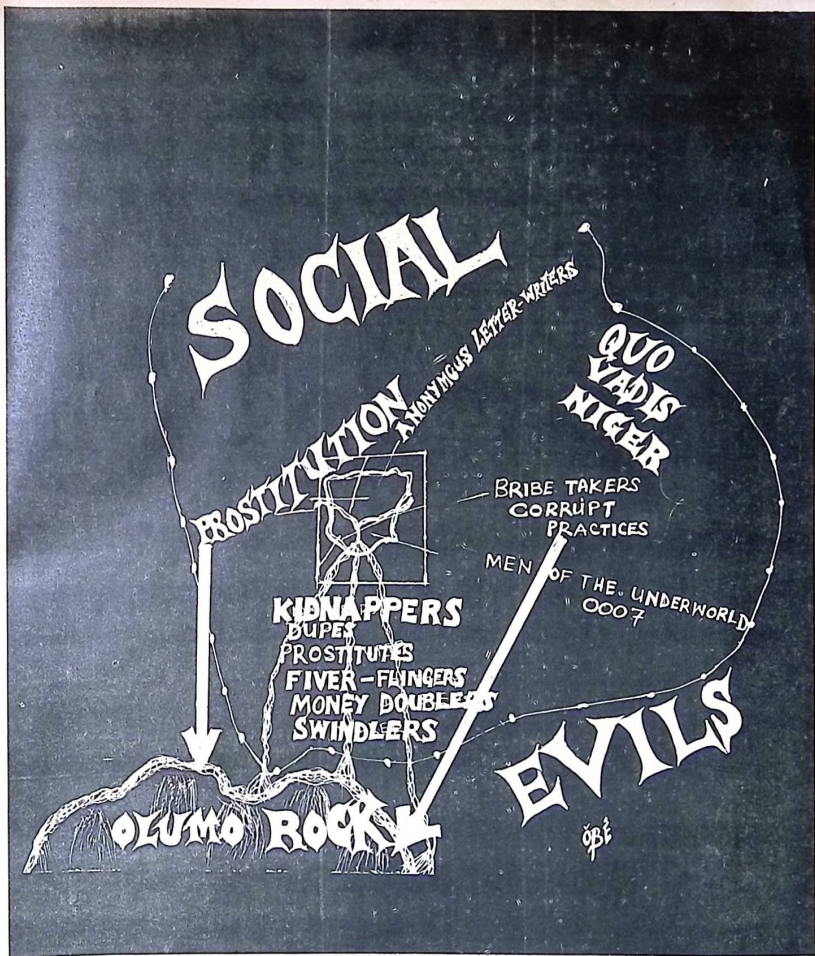 SOCIAL
ANONYMOUS LETTER-WRITERS
QUO
VADIS
NIGER
PROSTITUTION
BRIBE TAKERS
CORRUPT
PRACTICES
MEN OF THE. UNDERWORLD
0007
KIDNAPPERS
DUPES
PROSTITUTES
FIVER-FLINGERS
MONEY DOUBLERS
SWINDLERS
EVILS
OLUMO ROCK